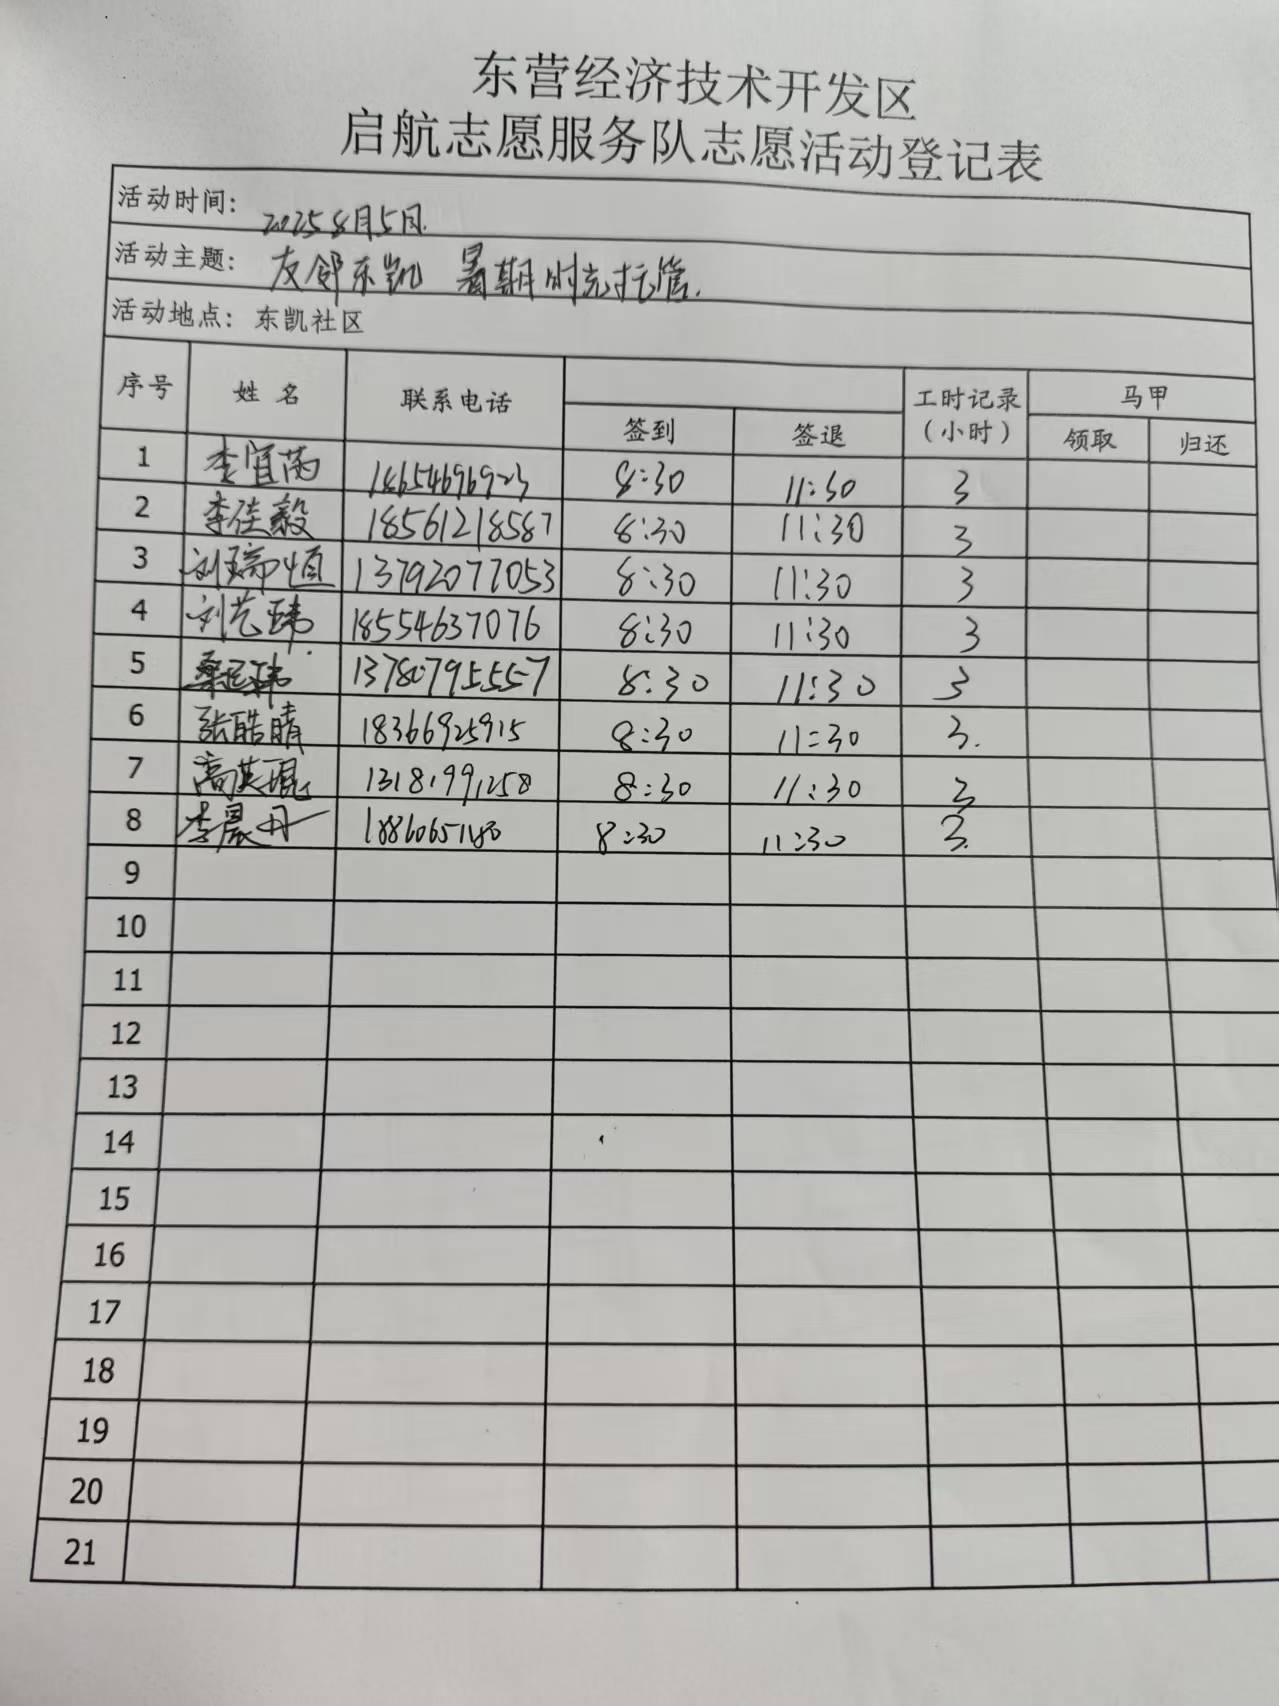 东营经济技术开发区
启航志愿服务队志愿活动登记表
活动时间: 2025 8月5日.
活动主题: 友邻东凯 暑期时光托管.
活动地点: 东凯社区
序号 姓名 联系电话 签到 签退 工时记录(小时) 马甲 领取 归还
1 李宜 18654696923 8:30 11:30 3
2 李佳毅 18561218587 8:30 11:30 3
3 刘瑞恒 13792077053 8:30 11:30 3
4 刘艺玮 18554637076 8:30 11:30 3
5 13780795557 8:30 11:30 3
6 张皓晴 18366925915 8:30 11:30 3.
7 高英琨 13181991258 8:30 11:30 3
8 李晨丹 8:30 11:30 3.
9
10
11
12
13
14
15
16
17
18
19
20
21